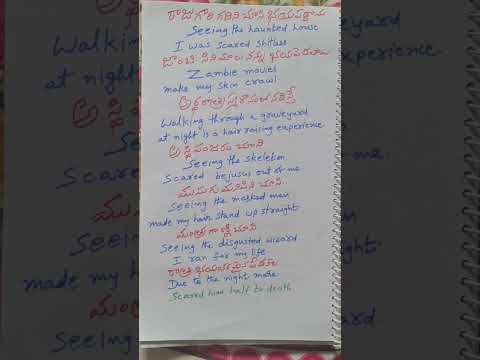 రాజుగారి గదిని చూసి భయపడ్డాను
Seeing the haunted house
I was scared shitless
జాంబి సినిమాలు నన్ను భయపెడతాయి
Zambie movies
make my skin crawl
అర్ధరాత్రి స్మశానంలో నడిస్తే
Walking through a graveyard
at night is a hair raising experience
అస్థిపంజరం చూసి
Seeing the skeleton
Scared bejusus out of me
ముసుగు మనిషిని చూసి
Seeing the masked man
made my hair stand up straight
మంత్రగాణ్ణి చూసి
Seeing the disgusted wizard
I ran for my life
రాత్రి
Due to the night mare
Scared him half to death